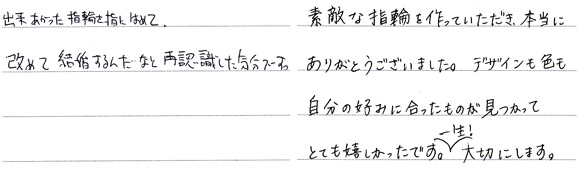 出来あがった指輪を指にはめて、
改めて結婚するんだなと再認識した気分です。
素敵な指輪を作っていただき、本当に
ありがとうございました。デザインも色も
自分の好みに合ったものが見つかって
とても嬉しかったです。一生!大切にします。